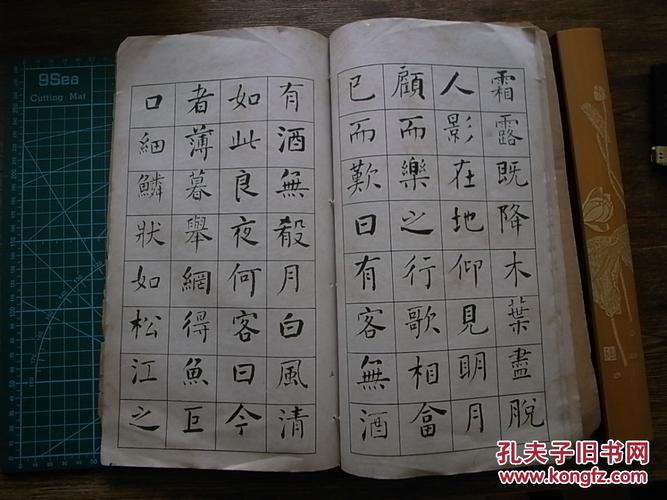 霜露既降木葉盡脫
人影在地仰見明月
顧而樂之行歌相畣
已而歎曰有客無酒
有酒無殽月白風清
如此良夜何客曰今
者薄暮舉網得魚巨
口細鱗狀如松江之
9Sea
Cutting Mat
孔夫子旧书网
www.kongfz.com